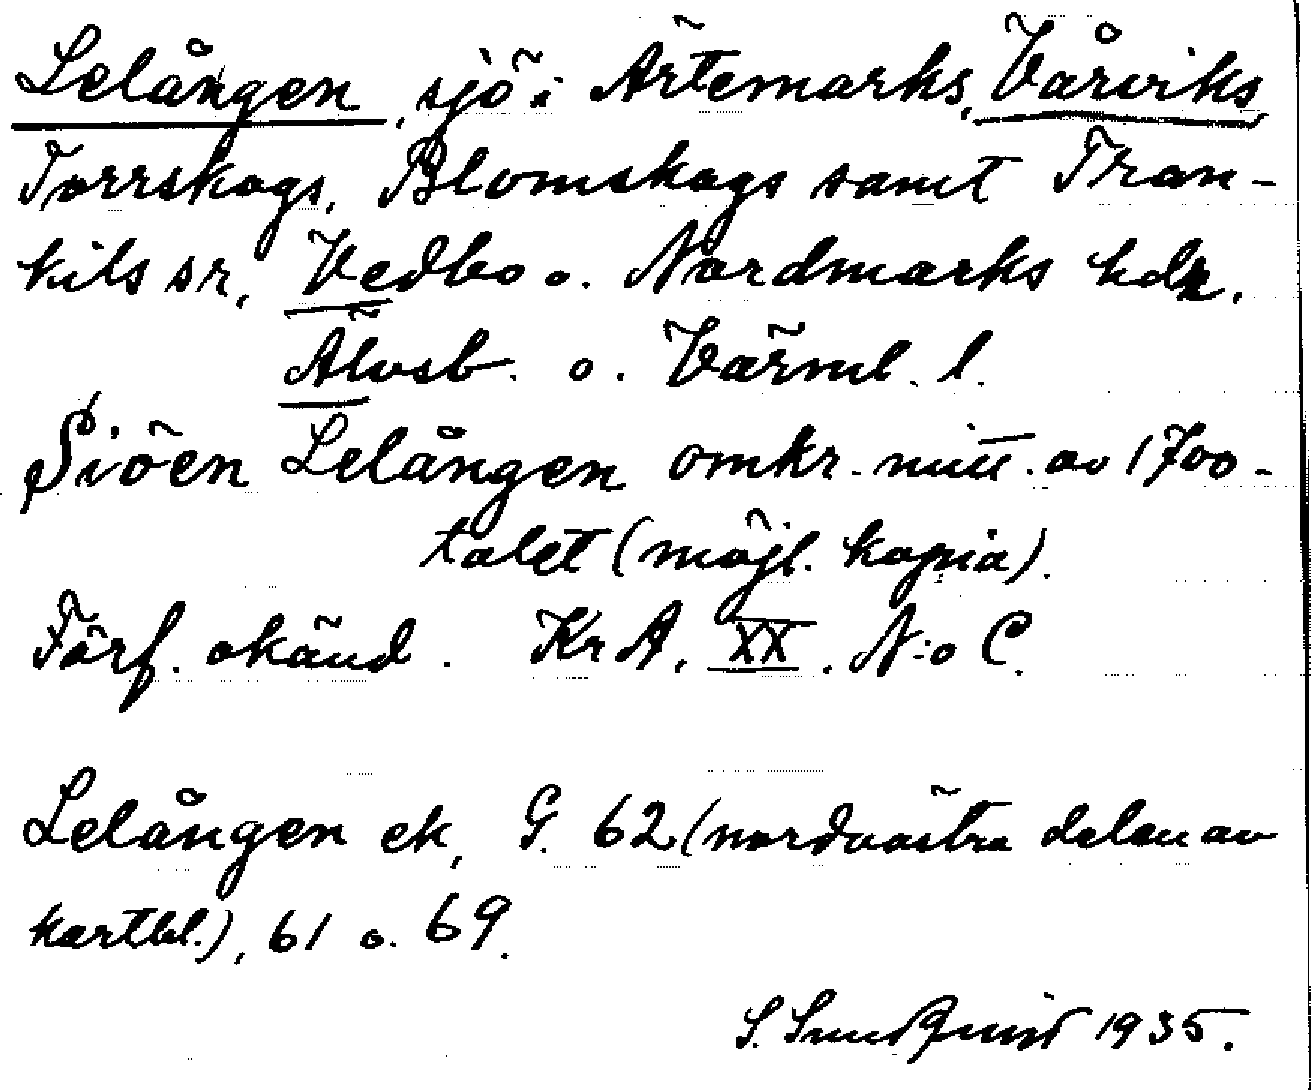 Lelången, sjö i Ärtemarks, Vårviks
Torrskogs, Blomskogs samt Tran-
kils sr, Vedbo o. Nordmarks hdr.
Älvsb. o. Värml. l.
Siöen Lelången omkr. mitt. av 1700-
talet (möjl. kopia).
Förf. okänd. KrA, XX. N:o C.
Lelången ek, G. 62 (nordvästra delen av
kartbl.), 61 o. 69.
S. Sundquist 1935.